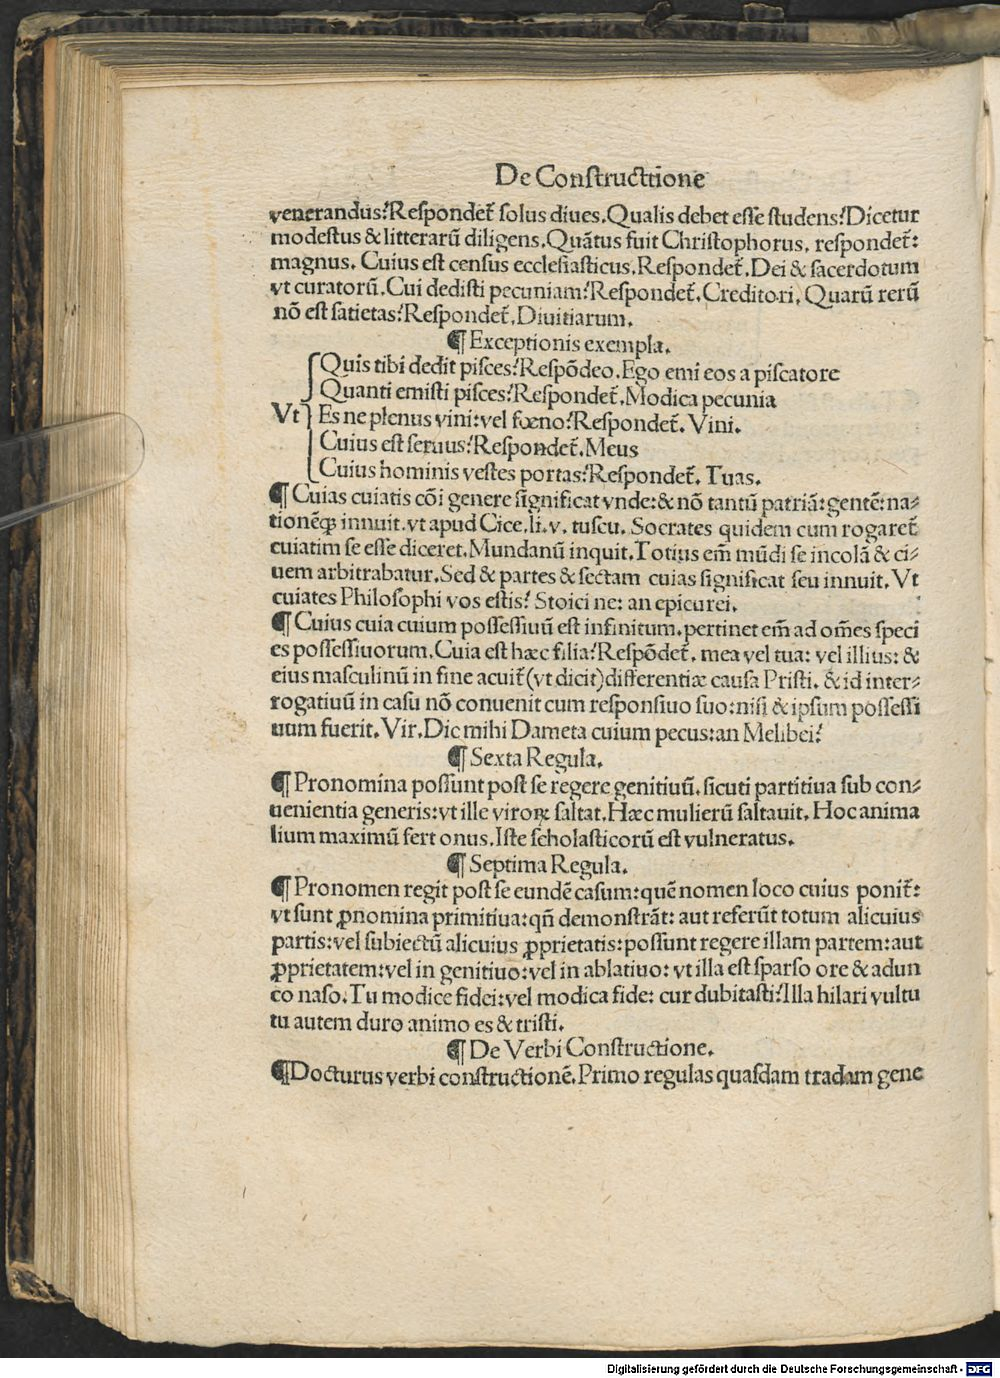 De Constructtione
venerandus? Respondet̃ solus diues. Qualis debet esse studens? Dicetur
modestus & litterarũ diligens. Quãtus fuit Christophorus. respondet̃:
magnus. Cuius est census ecclesiasticus. Respondet̃. Dei & sacerdotum
vt curatorũ. Cui dedisti pecuniam? Respondet̃. Creditori. Quarũ rerũ
nõ est satietas? Respondet̃. Diuitiarum.
¶ Exceptionis exempla.
Quis tibi dedit pisces? Respõdeo. Ego emi eos a piscatore
Quanti emisti pisces? Respondet̃. Modica pecunia
Vt Es ne plenus vini: vel fœno? Respondet̃. Vini.
Cuius est seruus? Respondet̃. Meus
Cuius hominis vestes portas? Respondet̃. Tuas.
¶ Cuias cuiatis cõi genere significat vnde: & nõ tantũ patriã: gentẽ: na⸗
tionẽꝗ innuit. vt apud Cice. li. v. tuscu. Socrates quidem cum rogaret̃
cuiatim se esse diceret. Mundanũ inquit. Totius em̃ mũdi se incolã & ci⸗
uem arbitrabatur. Sed & partes & sectam cuias significat seu innuit. Vt
cuiates Philosophi vos estis? Stoici ne: an epicurei.
¶ Cuius cuia cuium possessiuũ est infinitum. pertinet em̃ ad om̃es speci
es possessiuorum. Cuia est hæc filia? Respõdet̃. mea vel tua: vel illius: &
eius masculinũ in fine acuit̃ (vt dicit) differentiæ causa Pristi. & id inter⸗
rogatiuũ in casu nõ conuenit cum responsiuo suo: nisi & ipsum possessi
uum fuerit. Vir. Dic mihi Dameta cuium pecus: an Melibei?
¶ Sexta Regula.
¶ Pronomina possunt post se regere genitiuũ. sicuti partitiua sub con⸗
uenientia generis: vt ille viroꝝ saltat. Hæc mulierũ saltauit. Hoc anima
lium maximũ fert onus. Iste scholasticorũ est vulneratus.
¶ Septima Regula.
¶ Pronomen regit post se eundẽ casum: quẽ nomen loco cuius ponit̃:
vt sunt ꝓnomina primitiua: qñ demonstrãt: aut referũt totum alicuius
partis: vel subiectũ alicuius ꝓprietatis: possunt regere illam partem: aut
ꝓprietatem: vel in genitiuo: vel in ablatiuo: vt illa est sparso ore & adun
co naso. Tu modice fidei: vel modica fide: cur dubitasti? Illa hilari vultu
tu autem duro animo es & tristi.
¶ De Verbi Constructione.
¶ Docturus verbi constructionẽ. Primo regulas quasdam tradam gene
Digitalisierung gefördert durch die Deutsche Forschungsgemeinschaft - DFG